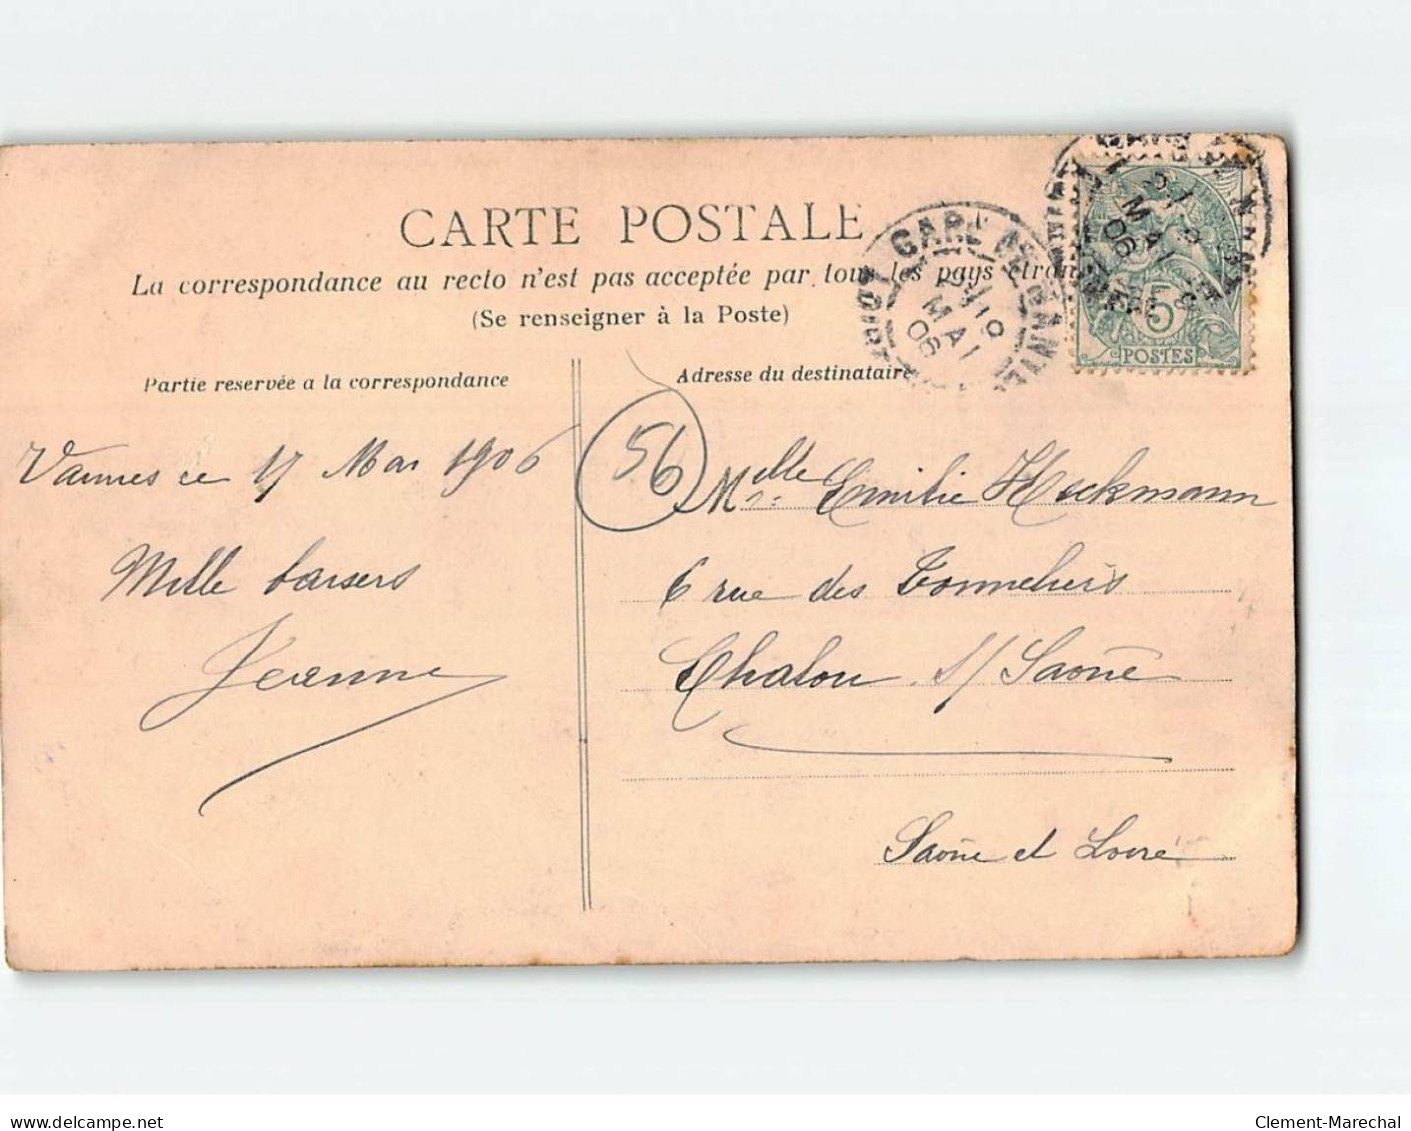 CARTE POSTALE
La correspondance au recto n'est pas acceptée par tous les pays étran
(Se renseigner à la Poste)
Partie reservée a la correspondance
Adresse du destinataire
GARE DE NANTES
MAI
06
5
POSTES
Vannes ce 17 Mai 1906
Mille baisers
Jeanne
56
Melle Emilie Heckmann
6 rue des Tonneliers
Chalon s/ Saône
Saône et Loire
www.delcampe.net
Clement-Marechal